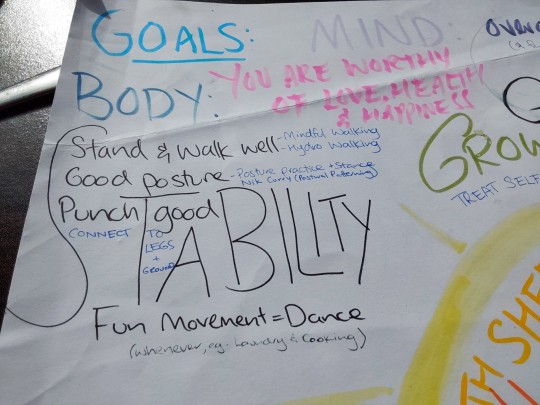 GOALS:
MIND:
BODY:
YOU ARE WORTHY
OF LOVE, HEALTH
& HAPPINESS
Stand & Walk well
-Mindful Walking
-Hydro Walking
Good posture
-Posture practice + Stance
Nik Curry (Postural Patterning)
Punch good
CONNECT TO
LEGS
+
GROUND
STABILITY
Fun Movement = Dance
(Whenever, eg. Laundry & Cooking)
TREAT SELF